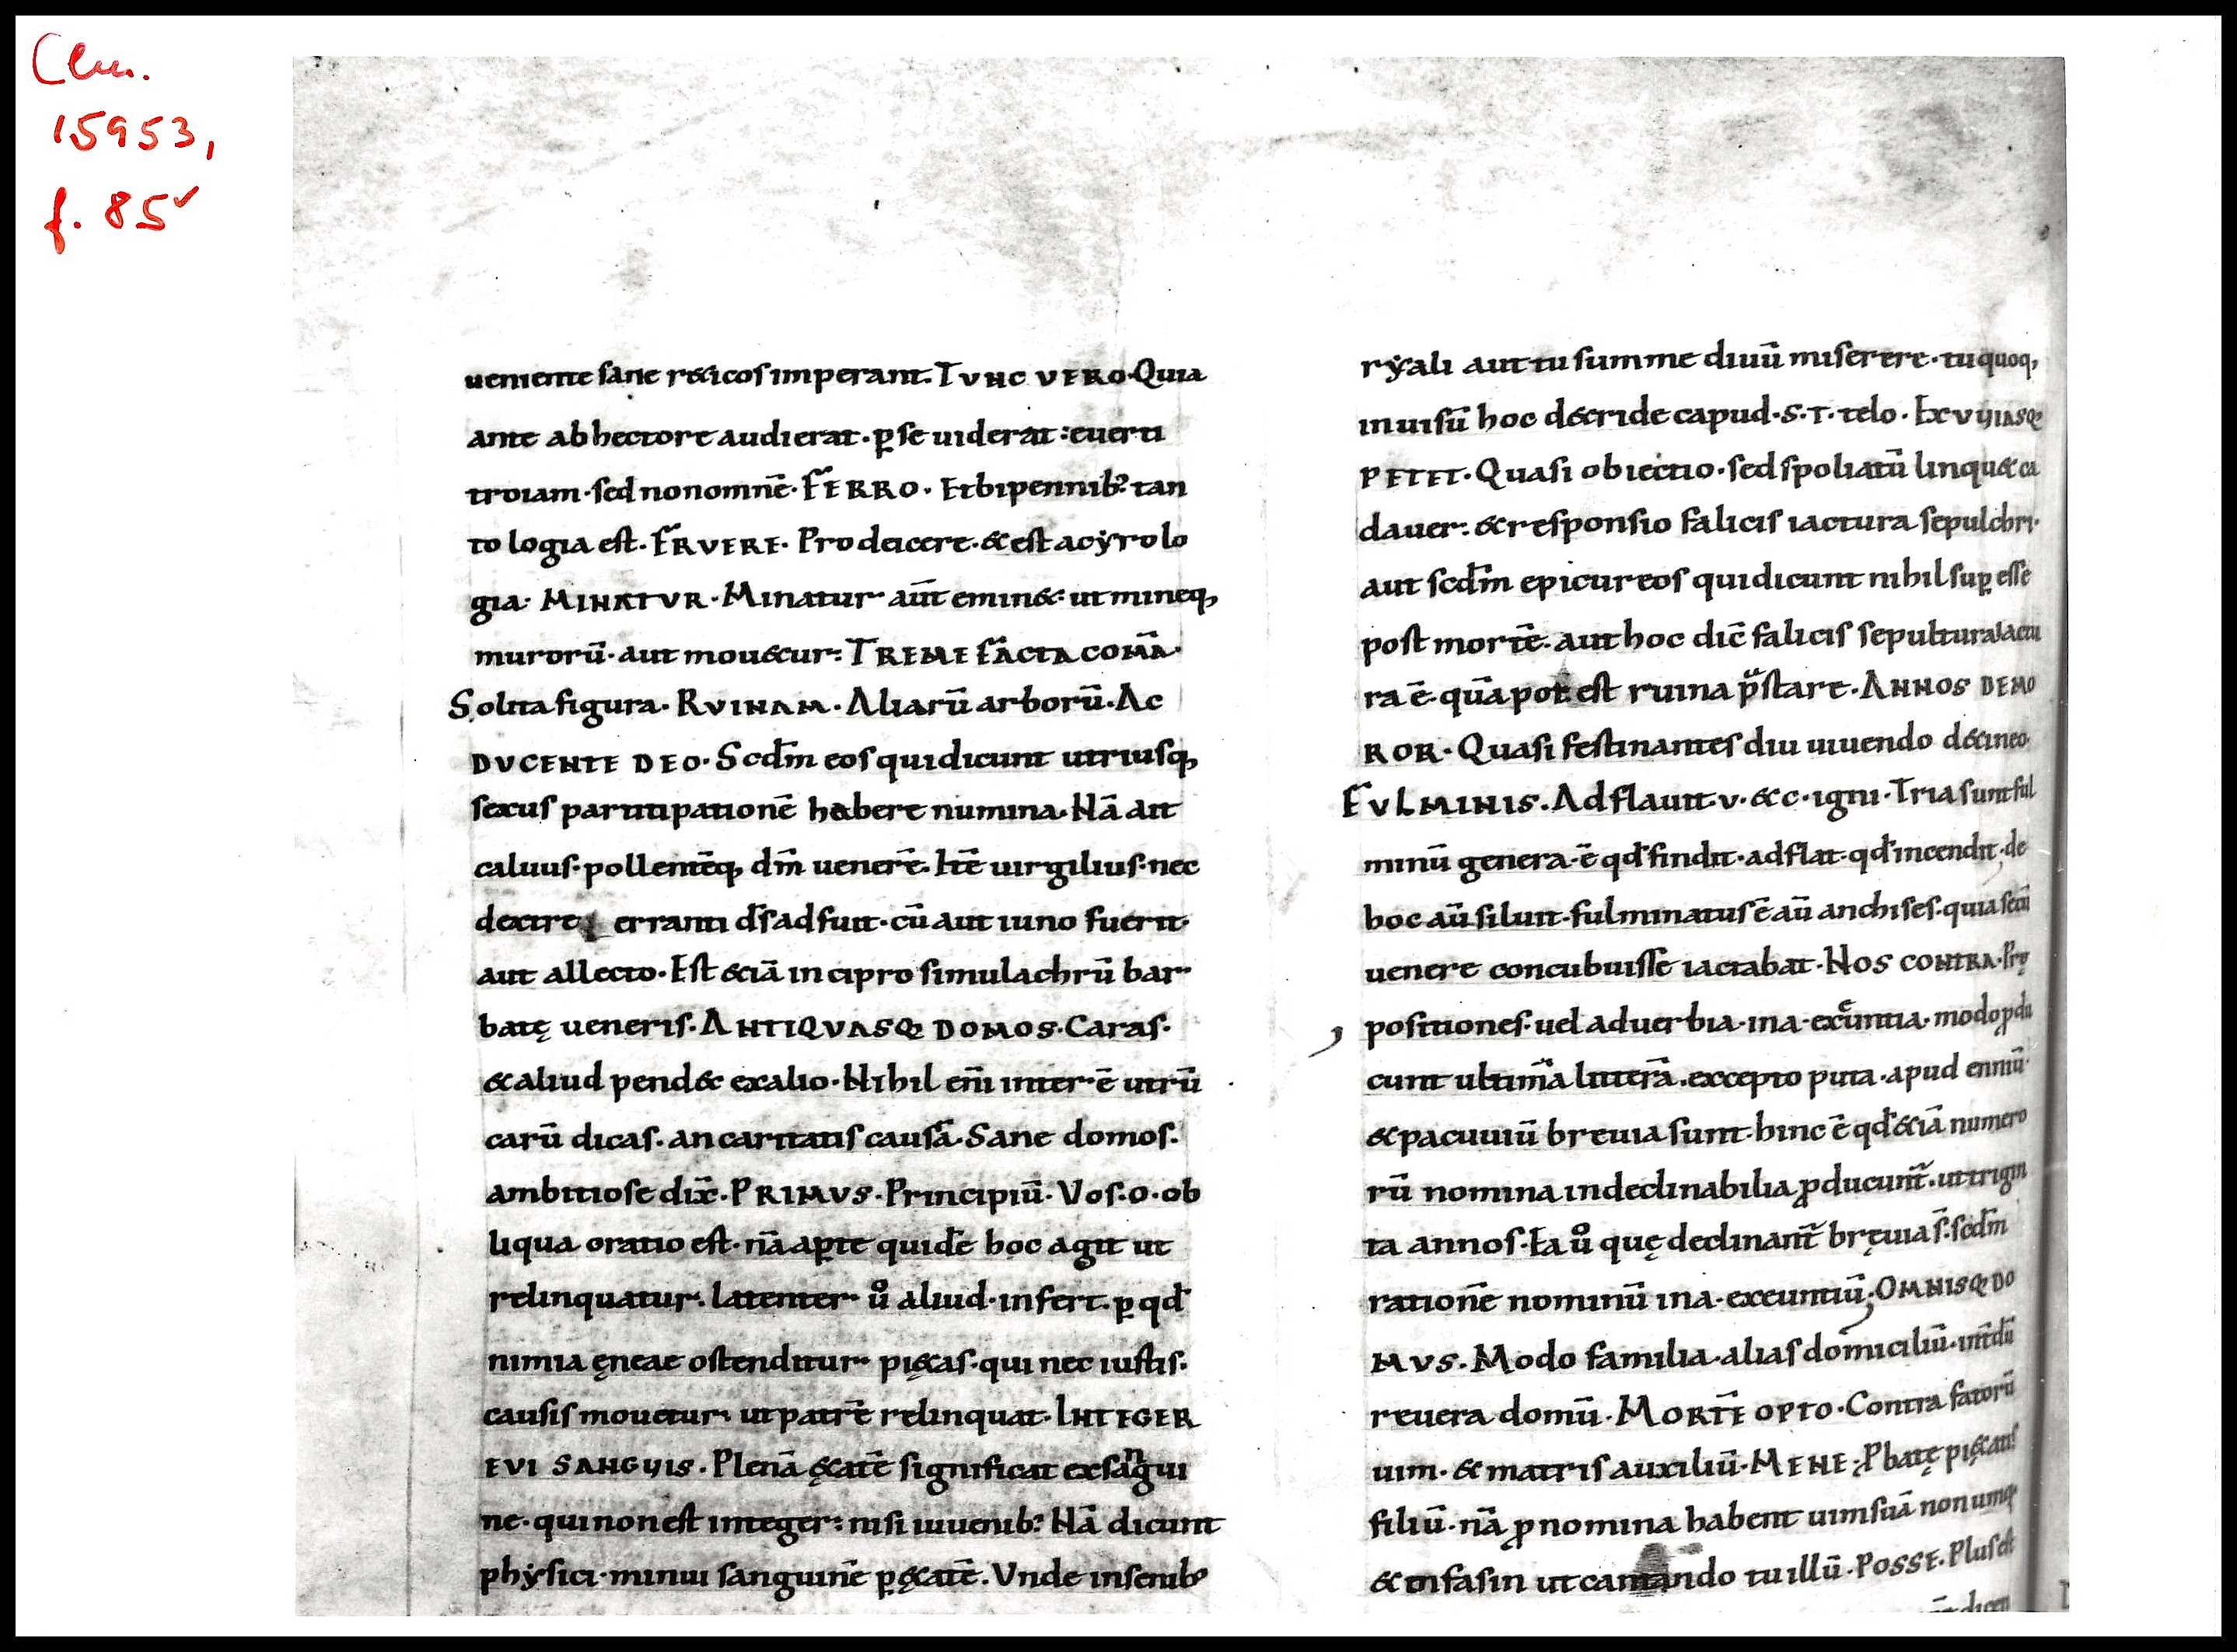 Clm.
15953,
f. 85v
ueniente sane r&icos imperant. TVNC VERO. Quia
ante ab hectore audierat. p̱ se uiderat: euerti
troiam. sed non omnē. FERRO. Et bipennib; tan
to logia est. ERVERE. Pro deicere. & est acẏrolo
gia. MINATVR. Minatur aūt emin&: ut mineq,
murorū. aut mou&ur: TREMEFACTA COMĀ.
Solita figura. RVINAM. Aliarū arborū. Ac
DVCENTE DEO. Scdm̄ eos qui dicunt utriusq,
sexus partitipationē habere numina. Nā ait
caluus. pollentēq, dm̄ uenerē. Itē uirgilius. nec
dextrę erranti ds̄ adfuit. cū aut iuno fuerit.
aut allecto. Est &iā in cipro simulachrū bar
batę ueneris. ANTIQVASQ; DOMOS. Caras.
& aliud pend& ex alio. Nihil em̄ inter ē utrū
carū dicas. an caritatis causā. Sane domos.
ambitiose dix̄. PRIMVS. Principiū. Vos. o. ob
liqua oratio est. nā ap̱te quidē hoc agit ut
relinquatur. latenter ů aliud infert. p̱ qd̄
nimia ęneae ostenditur pięcas. qui nec iustis.
causis mouetur. ut patrē relinquat. INTEGER
EVI SANGUIS. Plenā ę&atē significat ex sangui
ne. qui non est integer: nisi iuuenib; Nā dicunt
phẏsici. minui sanguinē p̱ ę&atē. Vnde in senib;
rẏali aut tu summe diuū miserere. tu quoq,
inuisū hoc d&ride capud. S. T. telo. EXVVIASQ;
PETET. Quasi obiectio. sed spoliatū linqu& ca
dauer: & responsio falicis iactura sepulchri.
aut scdm̄ epicureos qui dicunt nihil sup̱ esse
post mortē. aut hoc dic̄ falicis sepultura iactu
ra ē. quā potest ruina p̄stare. ANNOS DEMO
ROR. Quasi festinantes diu uiuendo d&ineo.
FVLMINIS. Adflauit. v. & c. igni. Tria sunt ful
minū genera. ē qd̄ findit. adflat. qd̄ incendit. de
hoc aū siluit. fulminatus ē aū anchises. quia secū
uenere concubuisse iactabat. NOS CONTRA. Prę
positiones. uel aduerbia. in a. exeuntia. modo p̱du
cunt ultimā litterā. excepto puta. apud enniū.
& pacuuiū breuia sunt. hinc ē qd̄ &iā numero
rū nomina indeclinabilia p̱ducunt̄. ut trigin
ta annos. Ea ů quę declinant̄ bręuia s̄. scdm̄
rationē nominū in a. exeuntiū; OMNISQ; DO
MVS. Modo familia. alias domiciliū. int̄dū
reuera domū. MORTĒ OPTO. Contra fatorū
uim. & matris auxiliū. MENE; Pbatę pięcatis
filiū. nā p̱nomina habent uim suā non umq̄
& enfasin ut cantando tu illū. POSSE. Plus est